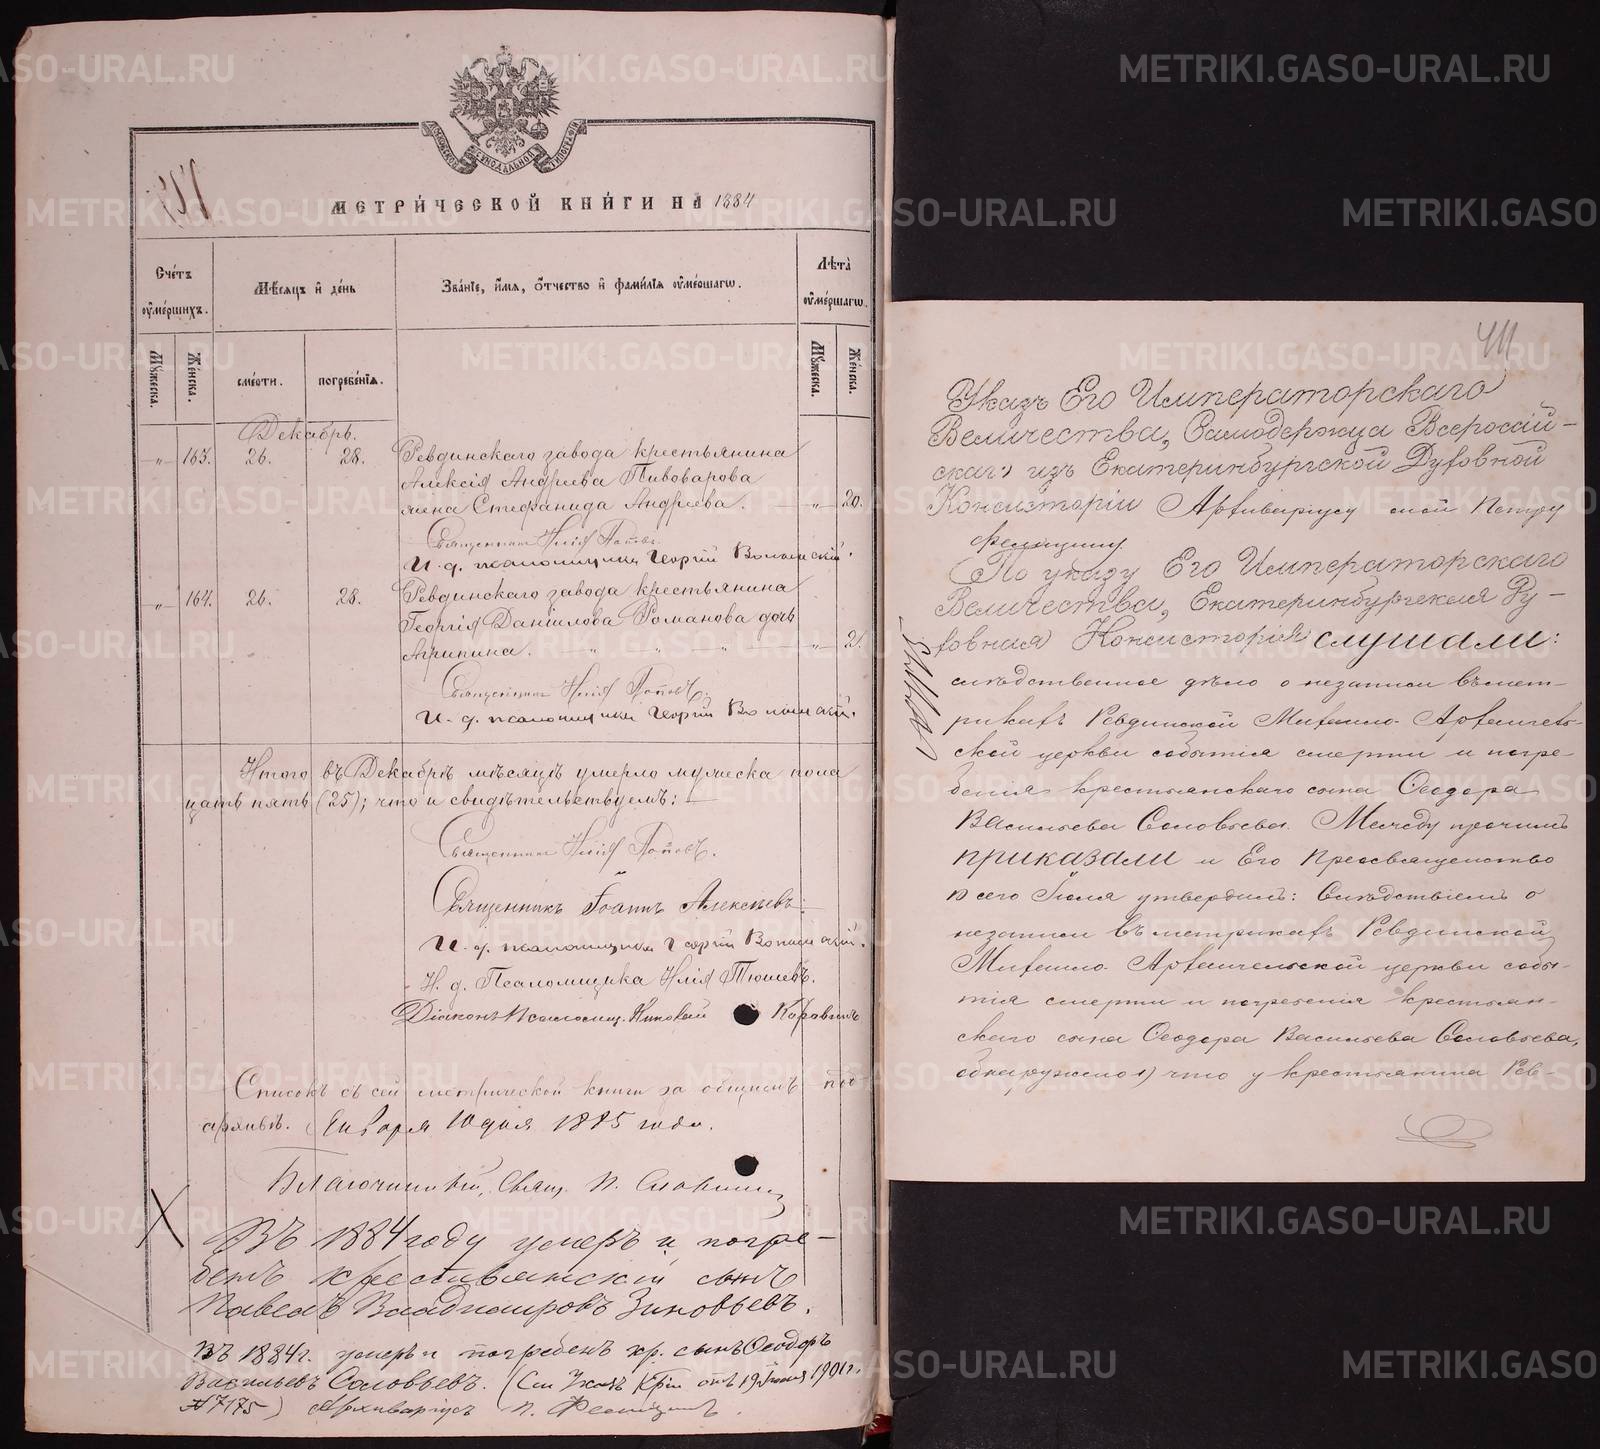 МОСКОВСКОЙ СѴНОДАЛЬНОЙ ТИПОГРАФІИ
МЕТРИ́ЧЕСКОЙ КНИ́ГИ НА 1884
Сче́тъ ᲂу҆ме́ршихъ.
Мѣ́сяцъ и҆ де́нь
Зва́нїе, и҆́мя, ѻ҆́тчество и҆ фами́лїя ᲂу҆ме́ршагѡ.
Лѣ́та ᲂу҆ме́ршагѡ.
Му́жеска.
Же́нска.
сме́рти.
погребе́нїя.
Му́жеска.
Же́нска.
Декабрь.
-"- 163. 26. 28. Ревдинскаго завода крестьянина
Алексія Андреева Пивоварова
жена Стефанида Андреева. -"- 20.
Священникъ Илія Поповъ.
И. д. псаломщика Георгій
-"- 164. 26. 28. Ревдинскаго завода крестьянина
Георгія Даніилова Романова дочь
Агрипина. -"- 21.
Священникъ Илія Поповъ.
И. д. псаломщика Георгій
Итого въ Декабрѣ мѣсяцѣ умерло мужеска пола
цать пять (25); что и свидѣтельствуемъ:
Священникъ Илія Поповъ.
Священникъ Іоаннъ Алексѣевъ.
И. д. псаломщика Георгій
И. д. Псаломщика Илія Тюшевъ.
Діаконъ Псаломщ. Николай
Списокъ съ сей метрической книги за общимъ под
архивъ. Января 10 дня 1885 года.
Благочинный, Свящ. П.
Въ 1884 году умеръ и погре-
бенъ крестьянскій сынъ
Павелъ Владимировъ Зиновьевъ.
Въ 1884 г. умеръ и погребенъ кр. сынъ Ѳеодоръ
Васильевъ Соловьевъ. (См Указъ отъ 19 Іюля 1901 г.
№ 7175) Архиваріусъ П.
411
Указъ Его Императорскаго
Величества, Самодержца Всеросій-
скаго изъ Екатеринбургской Духовной
Консисторіи Архиваріусу оной Петру
По указу Его Императорскаго
Величества, Екатеринбургская Ду-
ховная Консисторія слушали:
слѣдственное дѣло о незаписи въ мет-
рикахъ Ревдинской Михаило-Архангель-
ской церкви событія смерти и погре-
бенія крестьянскаго сына Ѳеодора
Васильева Соловьева. Между прочимъ
приказали и Его Преосвященство
сего Іюля утвердилъ: Слѣдствіемъ о
незаписи въ метрикахъ Ревдинской
Михаило-Архангельской церкви собы-
тія смерти и погребенія крестьян-
скаго сына Ѳеодора Васильева Соловьева,
обнаружено 1) что у крестьянина Рев-
METRIKI.GASO-URAL.RU